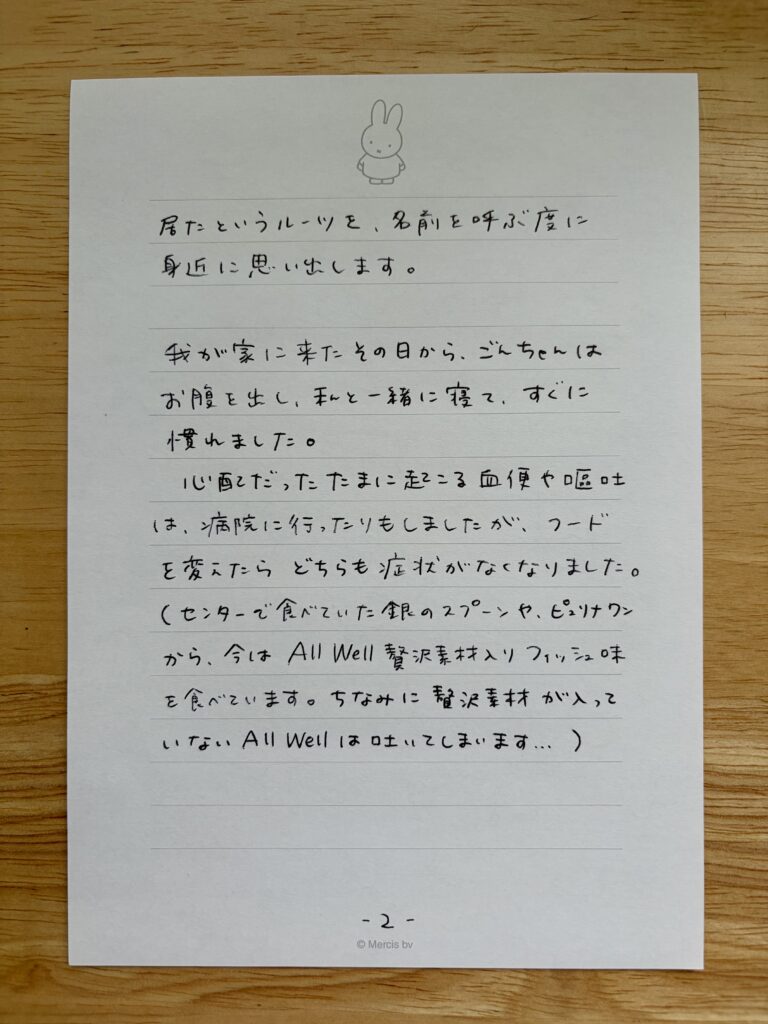 居たというルーツを、名前を呼ぶ度に
身近に思い出します。
我が家に来たその日から、ごんちゃんは
お腹を出し、私と一緒に寝て、すぐに
慣れました。
心配だったたまに起こる血便や嘔吐
は、病院に行ったりもしましたが、フード
を変えたら どちらも症状がなくなりました。
(センターで食べていた銀のスプーンや、ピュリナワン
から、今は All Well 贅沢素材入りフィッシュ味
を食べています。ちなみに贅沢素材が入って
いない All Well は吐いてしまいます… )
- 2 -
© Mercis bv